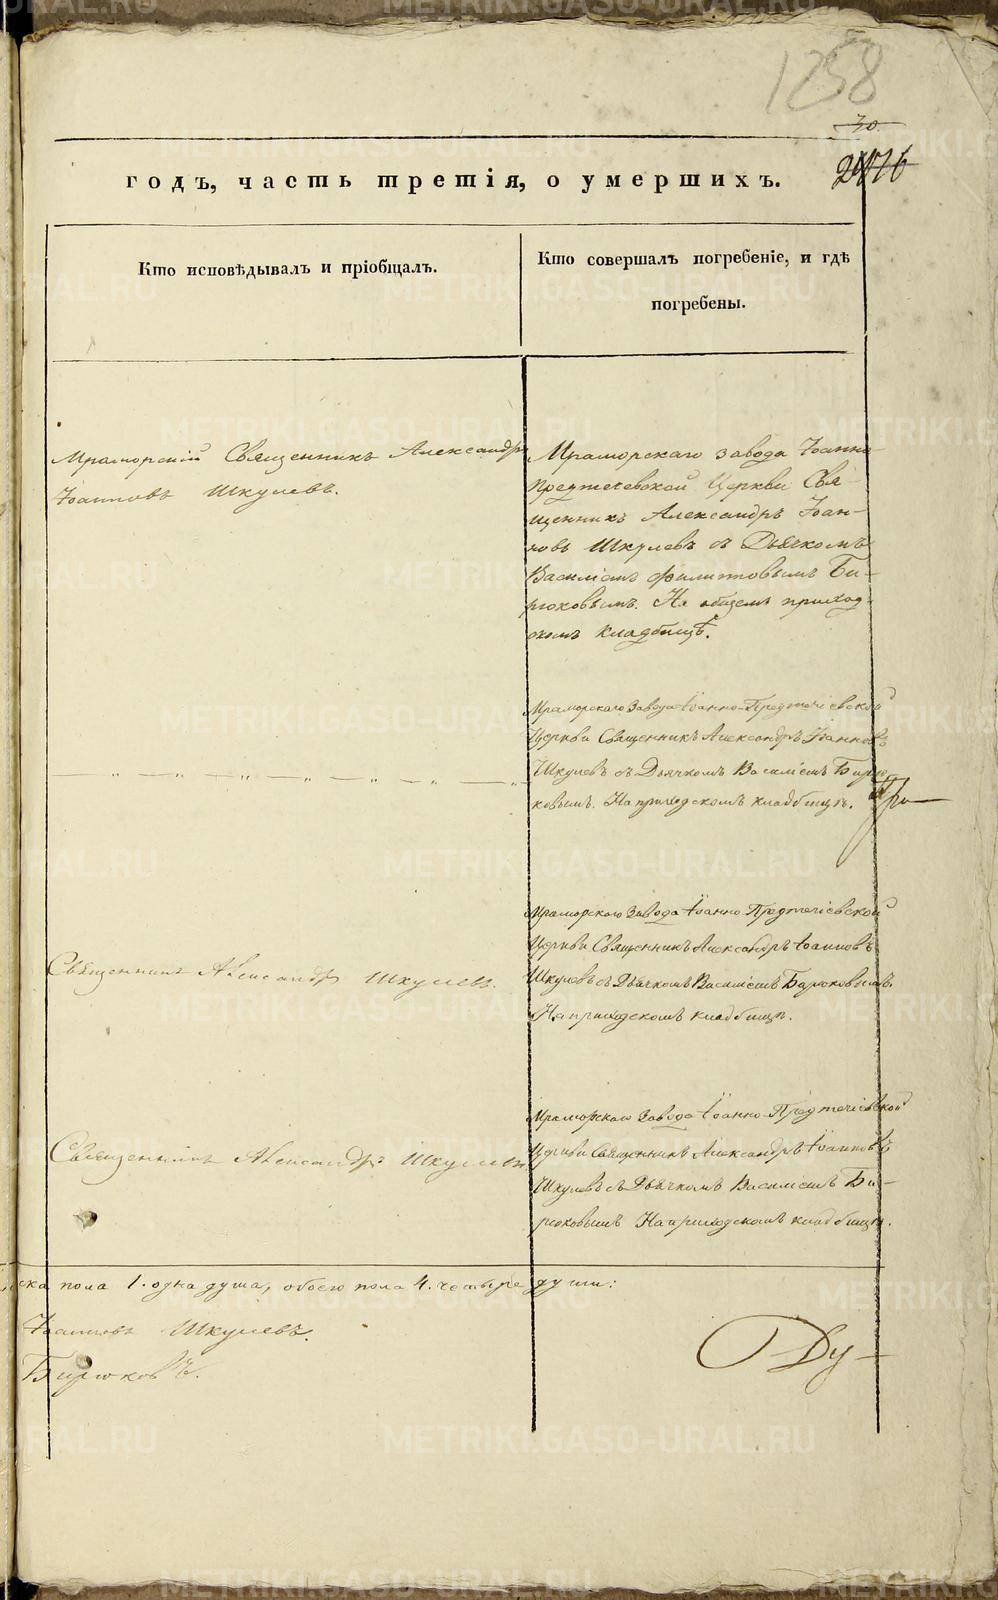 1258
30
годъ, часть третія, о умершихъ.
Кто исповѣдывалъ и пріобщалъ.
Кто совершалъ погребеніе, и гдѣ
погребены.
Мраморскій Священникъ Александръ
Іоанновъ Шкулевъ.
Мраморскаго завода Іоанно
Предтечевской Церкви Свя-
щенникъ Александръ Іоан-
новъ Шкулевъ съ Дьячкомъ
Василіемъ Филиповымъ Би-
рюковымъ. На общемъ приход-
скомъ кладбищѣ.
Мраморскаго Завода Іоанно-Предтечіевской
Церкви Священникъ Александръ Іоанновъ
Шкулевъ съ Дьячкомъ Василіемъ Бирю
ковымъ. На приходскомъ кладбищѣ.
Священникъ Александръ Шкулевъ.
Мраморскаго Завода Іоанно Предтечіевской
Церкви Священникъ Александръ Іоанновъ
Шкулевъ съ Дьячкомъ Василіемъ Бирюковымъ.
На приходскомъ кладбищѣ.
Священникъ Александръ Шкулевъ
Мраморскаго Завода Іоанно-Предтечіевской
Церкви Священникъ Александръ Іоанновъ
Шкулевъ съ Дьячкомъ Василіемъ Би-
рюковымъ На приходскомъ кладбищѣ.
ска пола 1. одна душа, обоего пола 4. четыре души:
Іоанновъ Шкулевъ.
Бирюковъ.
Ду-
METRIKI.GASO-URAL.RU